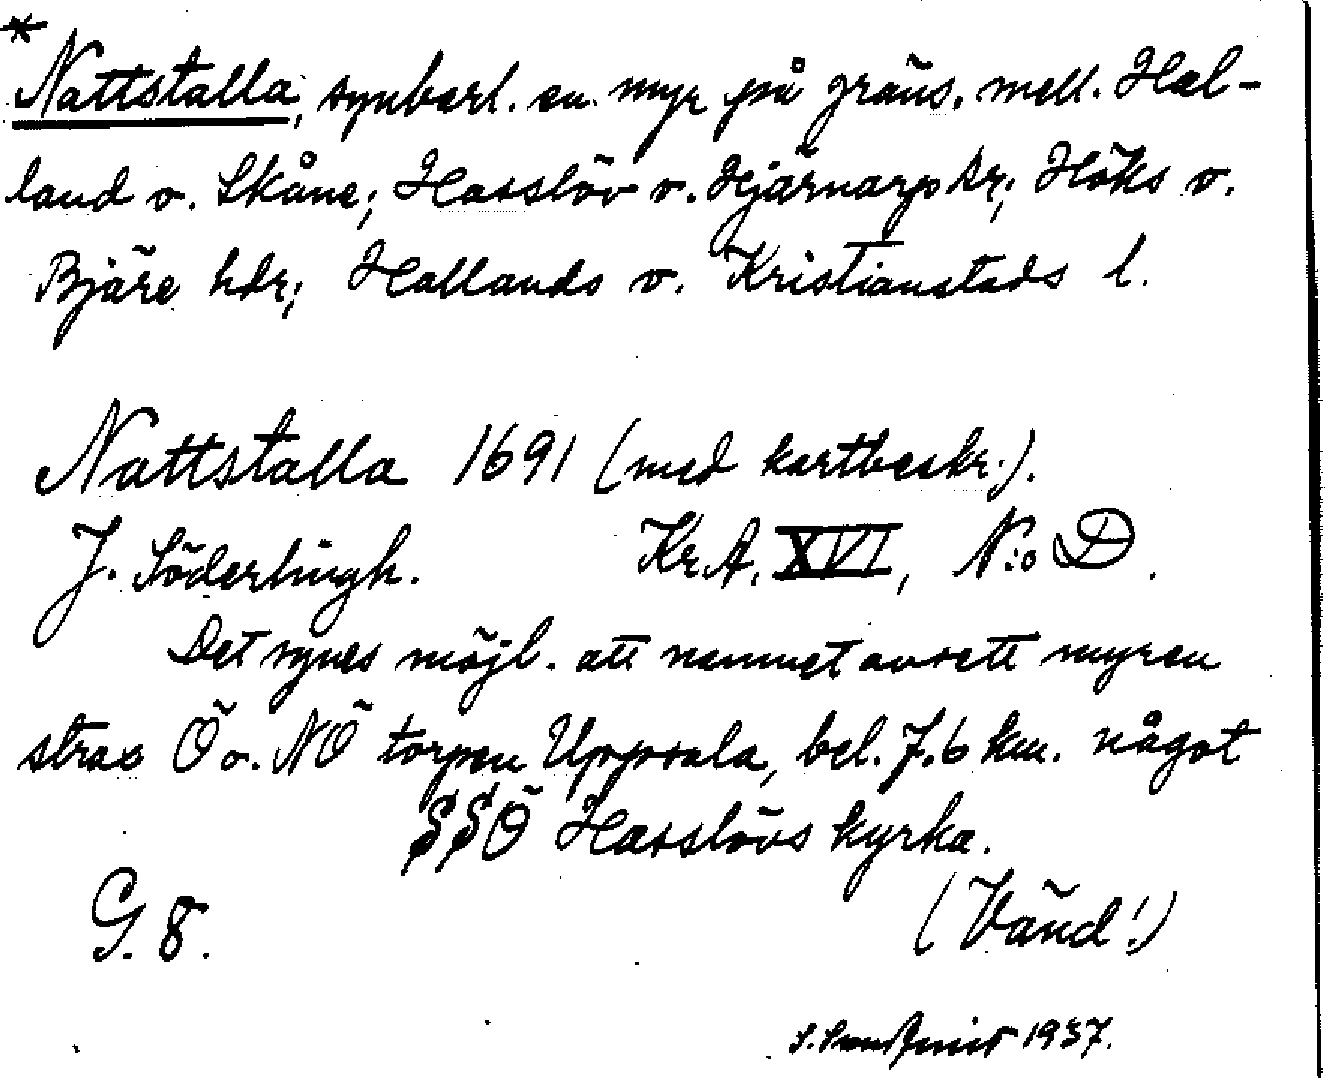 *
Nattstalla, synbarl. en myr på gräns. mell. Hal-
land o. Skåne; Hasslöv o. Hjärnarps kr; Höks o.
Bjäre hdr; Hallands o. Kristianstads l.
Nattstalla 1691 (med kartbeskr.).
J. Söderlingh. Kr.A. XVI, N:o D.
Det synes möjl. att namnet avsett myren
strax Ö o. NÖ torpen Uppsala, bel. 7.6 km. något
SSÖ Hasslövs kyrka.
G. 8. (Vänd!)
1937.